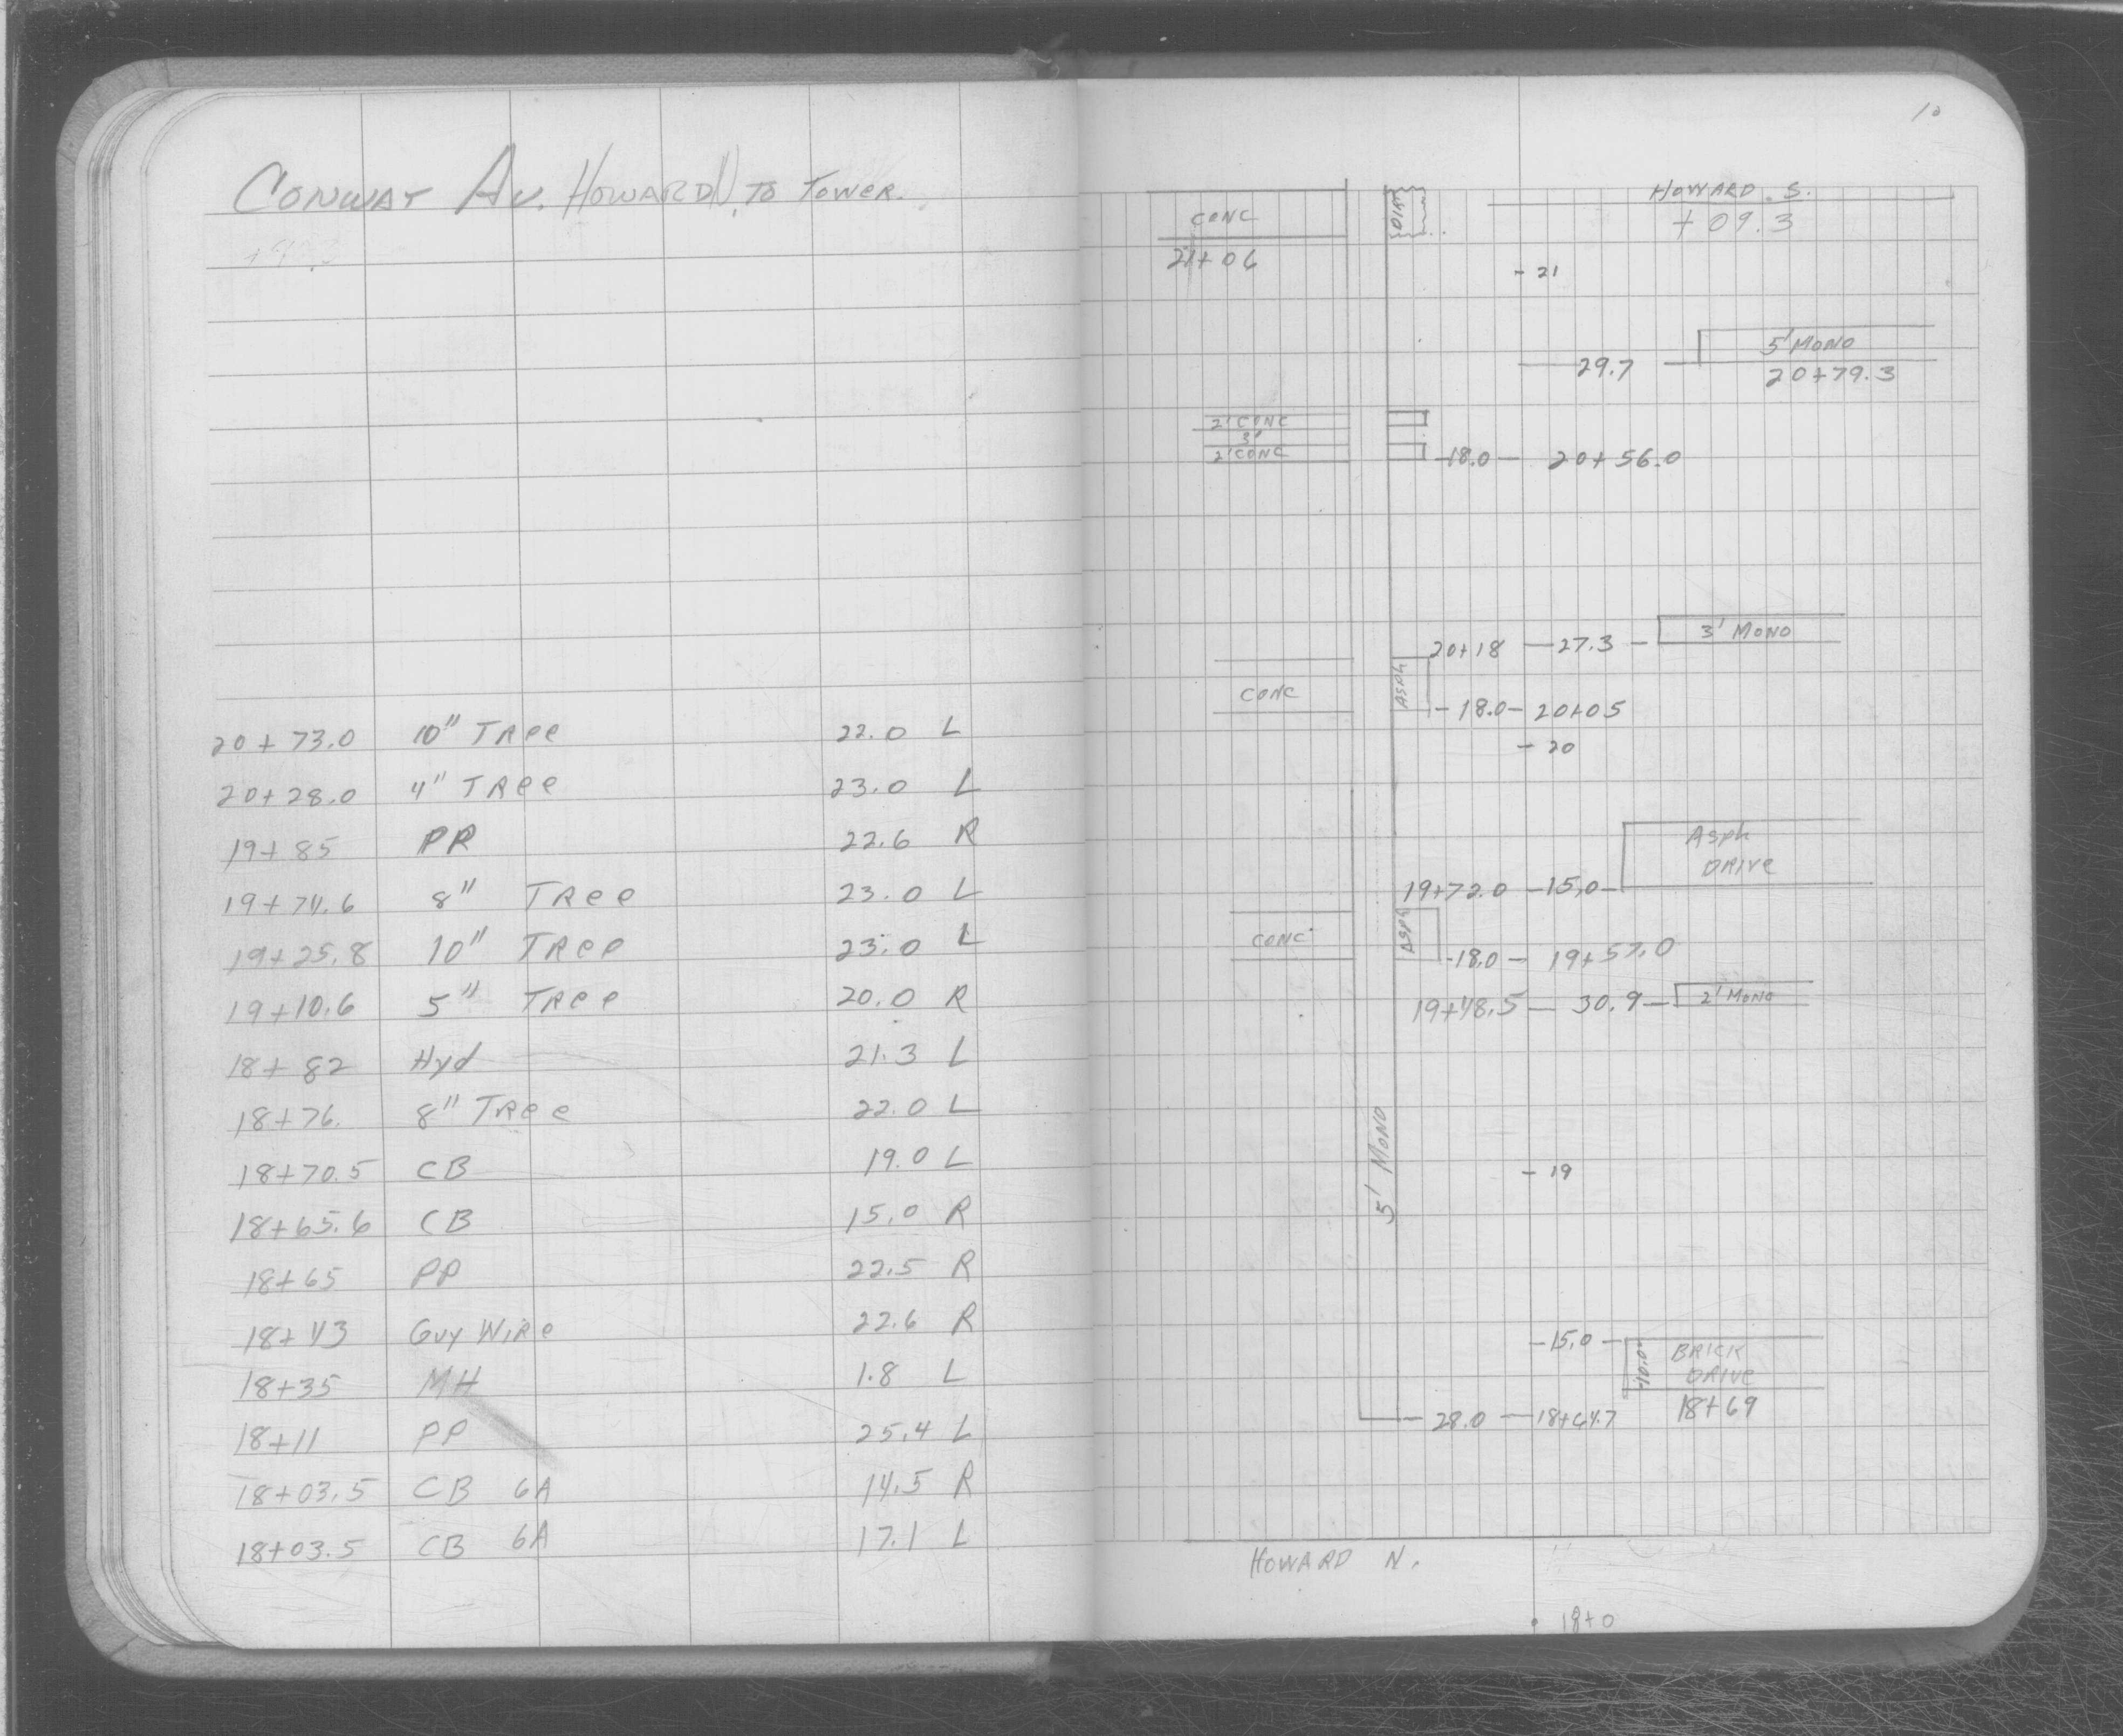 CONWAY AV. HOWARD N. TO TOWER.
20+73.0 10" TRee 22.0 L
20+28.0 4" TRee 23.0 L
19+85 PR 22.6 R
19+74.6 8" TRee 23.0 L
19+25.8 10" TRee 23.0 L
19+10.6 5" TRee 20.0 R
18+82 Hyd 21.3 L
18+76. 8" TRee 22.0 L
18+70.5 CB 19.0 L
18+65.6 CB 15.0 R
18+65 PP 22.5 R
18+43 Guy WiRe 22.6 R
18+35 MH 1.8 L
18+11 PP 25.4 L
18+03.5 CB 6A 14.5 R
18+03.5 CB 6A 17.1 L
10
HOWARD S.
CONC DIRT +09.3
21+06
- 21
5' MONO
29.7 20+79.3
2' CONC
3'
2' CONC
-18.0- 20+56.0
20+18 -27.3- 3' MONO
CONC ASPh
-18.0- 20+05
- 20
Asph
DRIVe
19+72.0 -15.0-
CONC ASPh
-18.0- 19+57.0
19+48.5 - 30.9- 2' MONO
5' MONO
- 19
-15.0- -10.0- BRICK
DRIVe
28.0 - 18+64.7 18+69
HOWARD N.
18+0